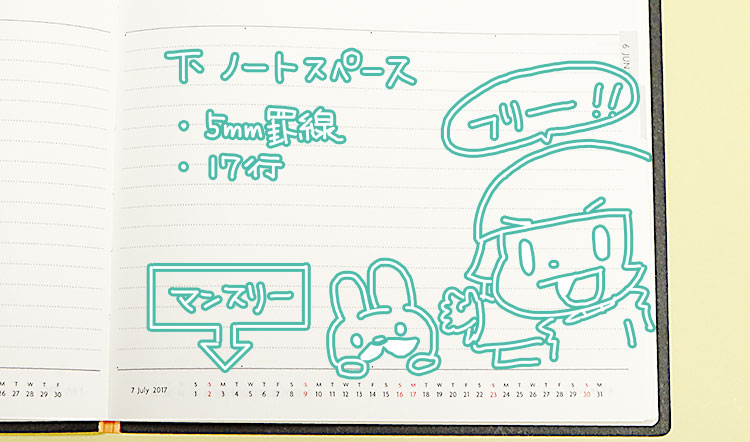 6 JUN
下 ノートスペース
フリー!!
・5mm罫線
・17行
マンスリー
T W T F S M T W T F
27 28 29 30
7 July 2017
S S M T W T F S S M T W T F S S M T W T F S S M T W T F S S M
1 2 3 4 5 6 7 8 9 10 11 12 13 14 15 16 17 18 19 20 21 22 23 24 25 26 27 28 29 30 31